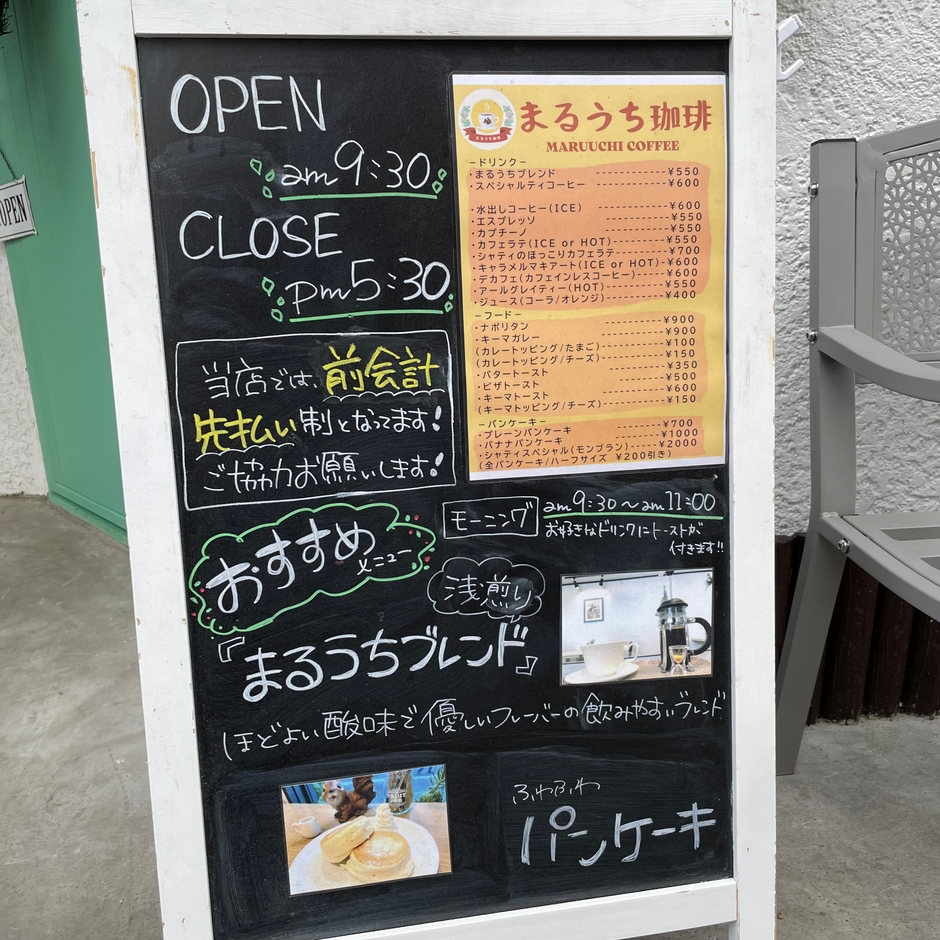 OPEN
am9:30
CLOSE
pm5:30
当店では、前会計
先払い制となってます!
ご協力お願いします!
まるうち珈琲
まるうち珈琲
MARUUCHI COFFEE
ードリンクー
・まるうちブレンド ------------¥550
・スペシャルティコーヒー ------------¥600
・水出しコーヒー(ICE) ------------¥600
・エスプレッソ ------------¥550
・カプチーノ ------------¥550
・カフェラテ(ICE or HOT)------------¥550
・シャティのほっこりカフェラテ------------¥700
・キャラメルマキアート(ICE or HOT)-¥600
・デカフェ(カフェインレスコーヒー)------¥600
・アールグレイティー(HOT) ------------¥550
・ジュース(コーラ/オレンジ) ------------¥400
ーフードー
・ナポリタン ------------¥900
・キーマカレー ------------¥900
(カレートッピング/たまご) ------------¥100
(カレートッピング/チーズ) ------------¥150
・バタートースト ------------¥350
・ピザトースト ------------¥500
・キーマトースト ------------¥600
(キーマトッピング/チーズ) ------------¥150
ーパンケーキー
・プレーンパンケーキ ------------¥700
・バナナパンケーキ ------------¥1000
・シャティスペシャル(モンブラン)------------¥2000
(全パンケーキ/ハーフサイズ ¥200引き)
モーニング am9:30〜am11:00
お好きなドリンクにトーストが
付きます!!
おすすめ
メニュー
浅煎り
『まるうちブレンド』
ほどよい酸味で優しいフレーバーの飲みやすいブレンド
ふわふわ
パンケーキ
OPEN